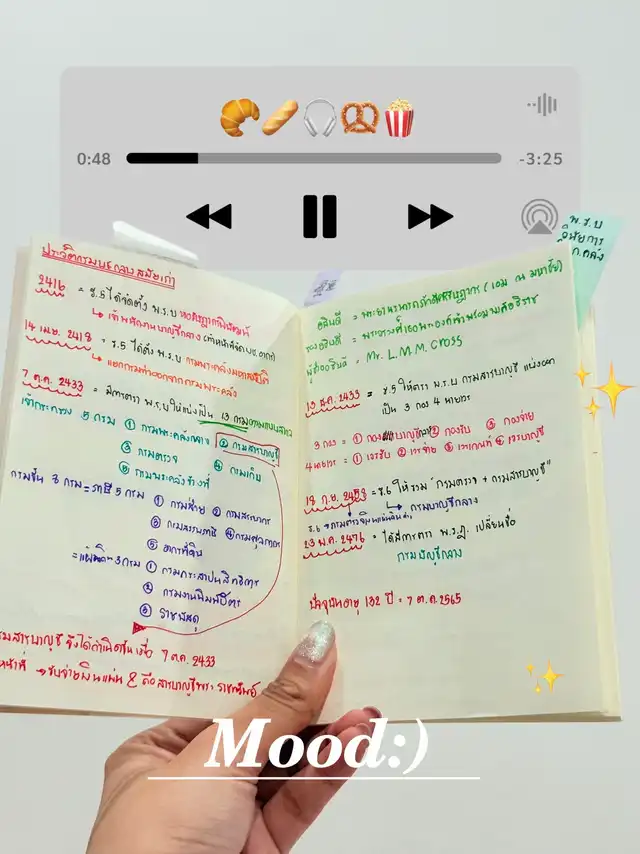 0:48
-3:25
พ.ร.บ
วินัยการ
ง.คลัง
ประวัติกรมบัญชีกลางสมัยเก่า
2416 = ร.5 ได้จัดตั้ง พ.ร.บ หอรัษฎากรพิพัฒน์
↳ เจ้าพนักงานบัญชีกลาง
14 เม.ย. 2418 = ร.5 ได้ตั้ง พ.ร.บ กรมพระคลังมหาสมบัติ
↳ แยกกรมท่าออกจากกรมพระคลัง
7 ต.ค. 2433 = มีการตรา พ.ร.บ ให้แบ่งเป็น 13 กรม
เจ้ากระทรวง 5 กรม ① กรมพระคลังกลาง ② กรมสารบาญชี
③ กรมตรวจ ④ กรมเก็บ
⑤ กรมพระคลังข้างที่
กรมขึ้น 8 กรม = ราษี 5 กรม ① กรมส่วย ② กรมสรรพากร
③ กรมสรรพภาษี ④ กรมศุลกากร
⑤ อากรที่ดิน
3 กรม ① กรมกระสาปน์สิทธิการ
② กรมงานพิมพ์บัตร
③ ราชพัสดุ
กรมสารบาญชี จึงได้กำเนิดขึ้นเมื่อ 7 ต.ค. 2433
หน้าที่ → รับจ่ายเงินแผ่น & ถือสารบาญชีพระราชทรัพย์
อธิบดี =
รองอธิบดี =
ผู้ช่วยอธิบดี = Mr. L.M.M. CROSS
2433 = ร.5 ให้ตรา พ.ร.บ กรมสารบาญชี แบ่งออก
เป็น 3 กอง 4 นายเวร
3 กอง = ① กองบาญชีกลาง ② กองรับ ③ กองจ่าย
4 นายเวร = ① เวรรับ ② เวรจ่าย ③ เวรเกณฑ์ ④ เวรบาญชี
18 ก.ย. 2458 = ร.6 ให้รวม "กรมตรวจ + กรมสารบาญชี"
↳ กรมบาญชีกลาง
23 พ.ค. 2476 = ได้มีการตรา พ.ร.ฎ. เปลี่ยนชื่อ
กรมบัญชีกลาง
ปัจจุบันอายุ 132 ปี = 7 ต.ค. 2565
Mood:)